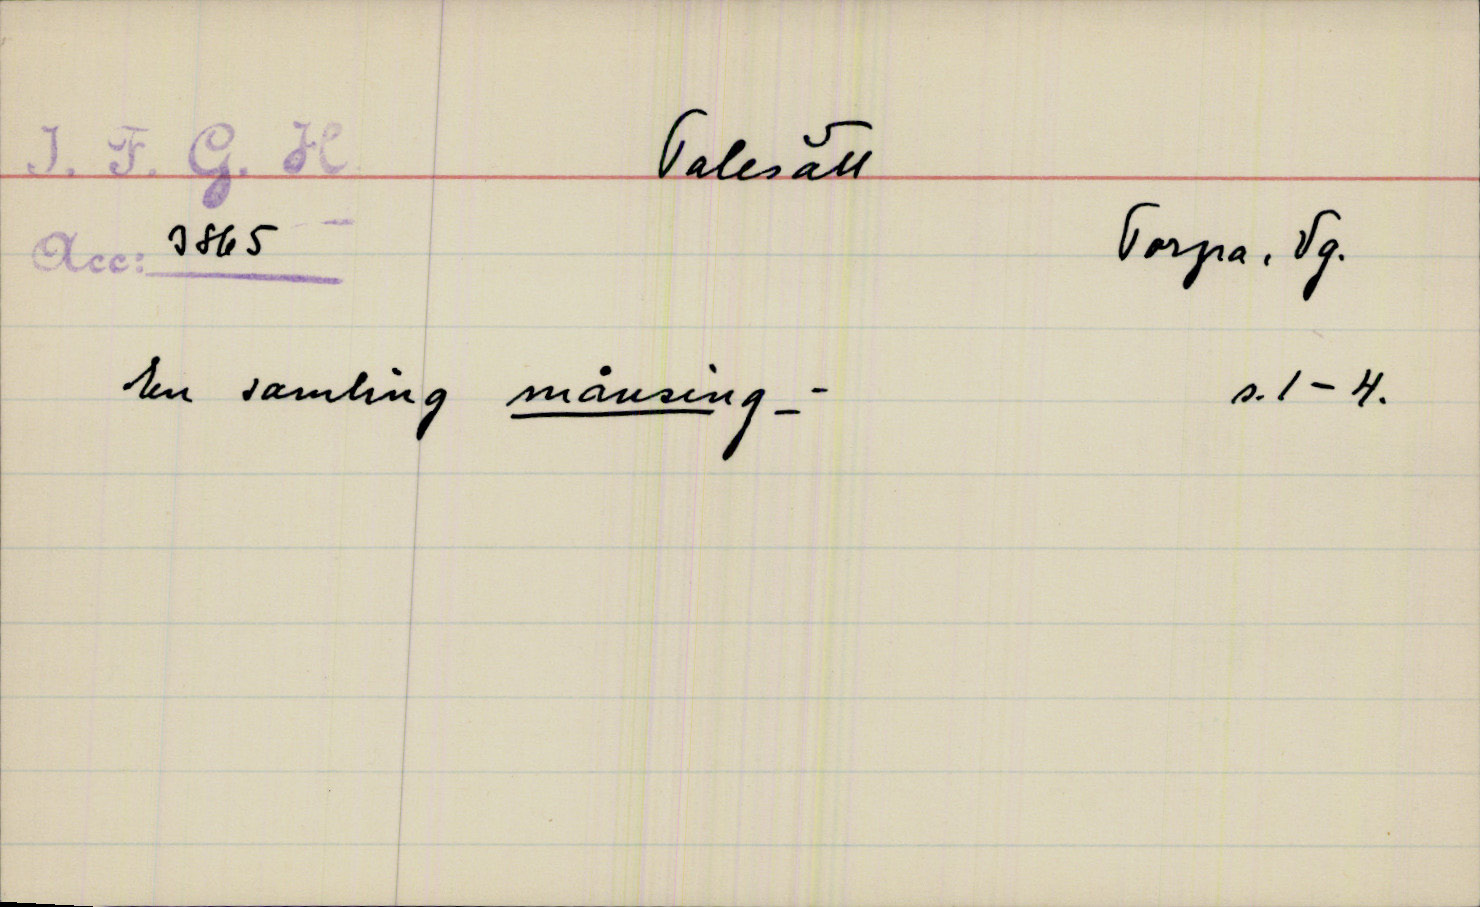 I. F. G. H.
Talesätt
Acc: 3865
Torpa, Vg.
En samling månsing -
s. 1 - 4.